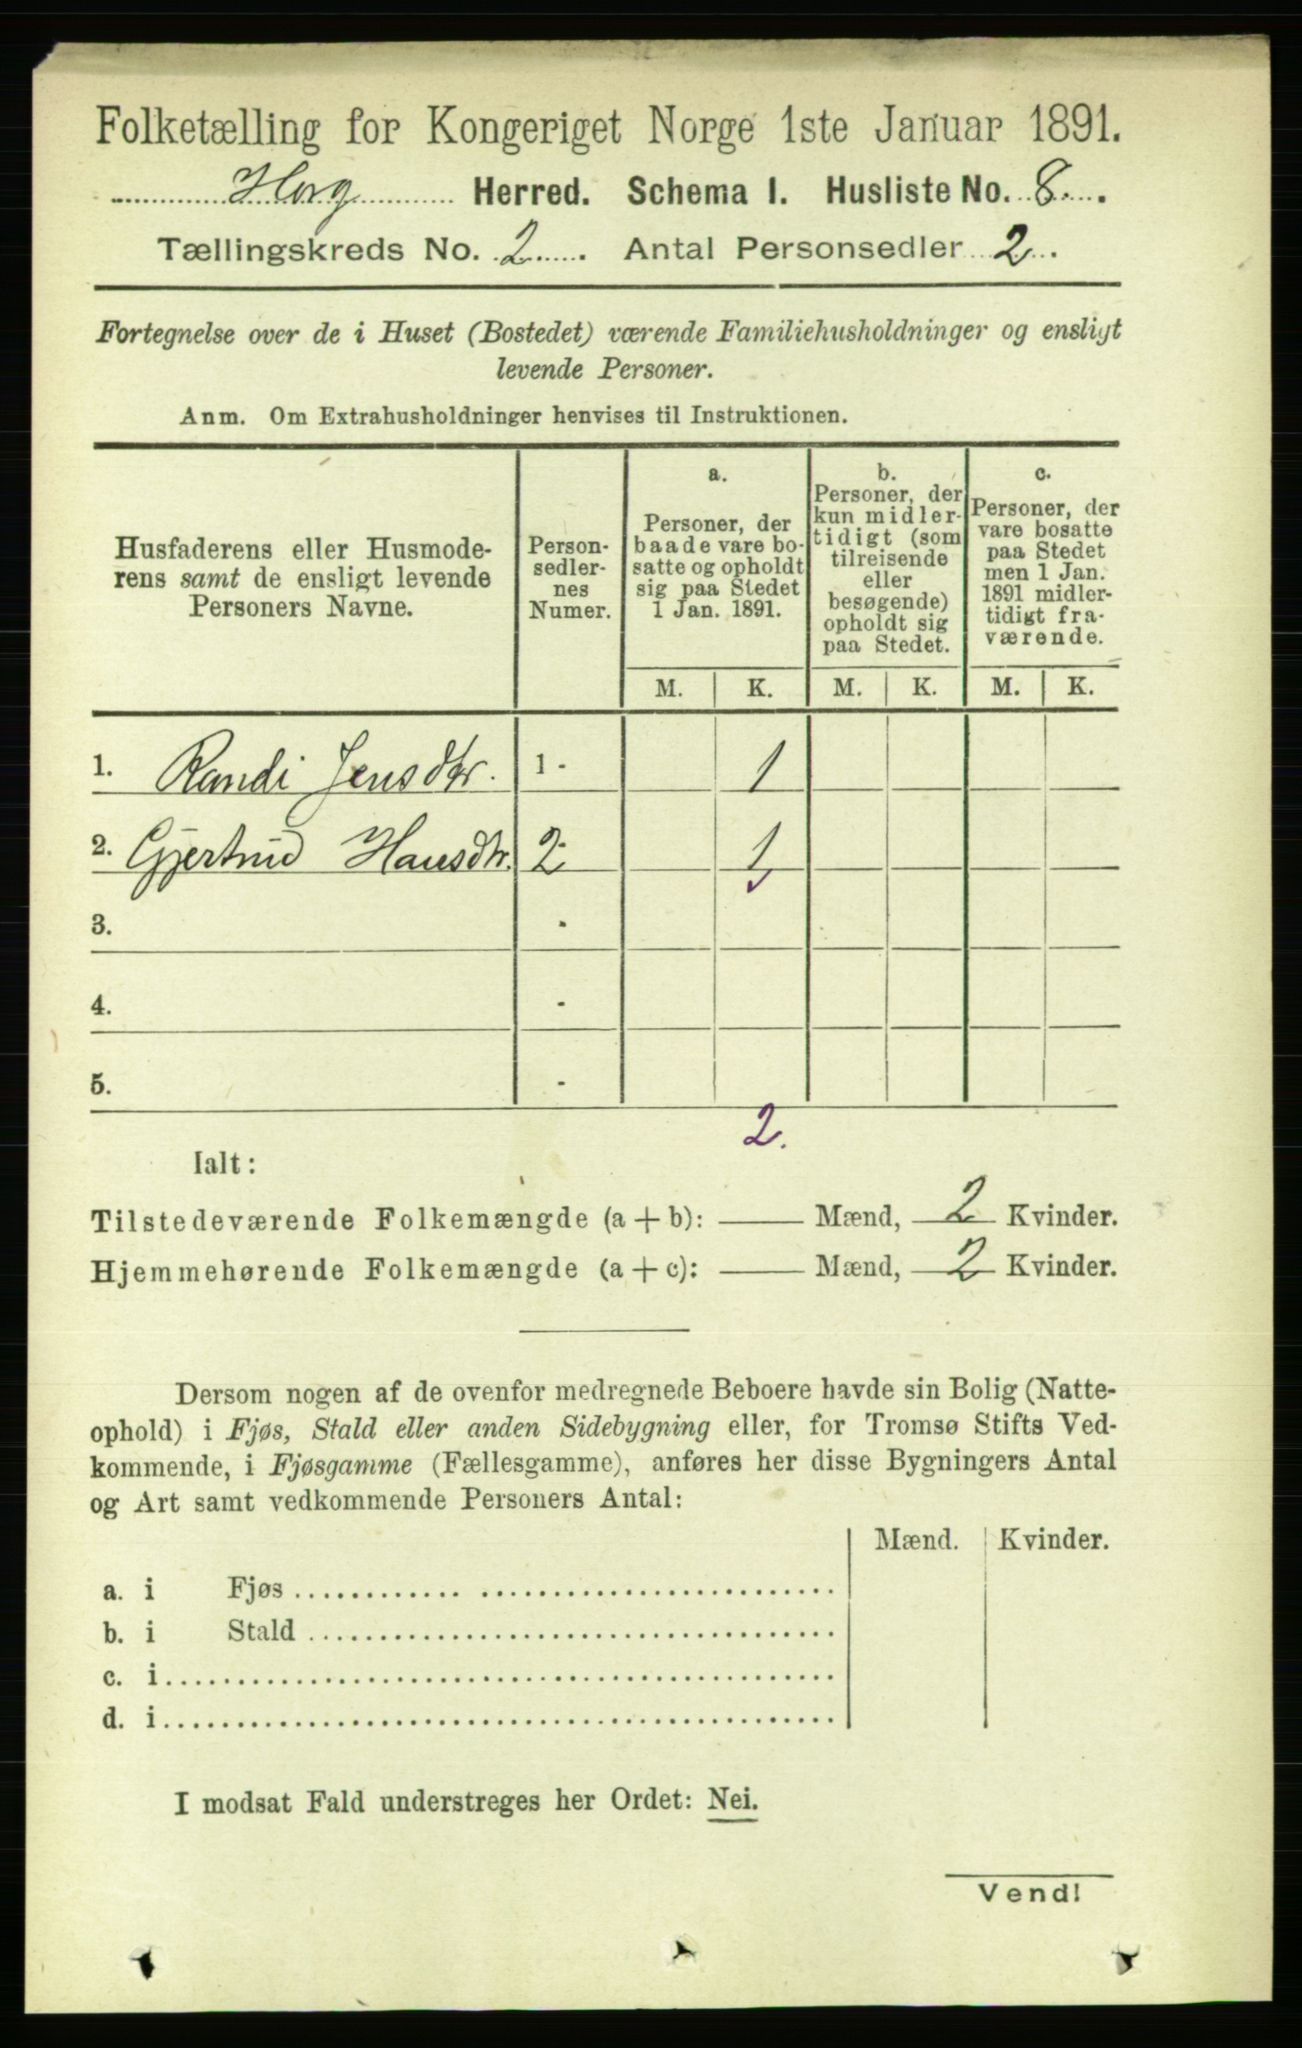 Folketælling for Kongeriget Norge 1ste Januar 1891.
Horg Herred. Schema I. Husliste No. 8.
Tællingskreds No. 2. Antal Personsedler 2.
Fortegnelse over de i Huset (Bostedet) værende Familiehusholdninger og ensligt
levende Personer.
Anm. Om Extrahusholdninger henvises til Instruktionen.
Husfaderens eller Husmode-
rens samt de ensligt levende
Personers Navne.
Person-
sedler-
nes
Numer.
a.
Personer, der
baade vare bo-
satte og opholdt
sig paa Stedet
1 Jan. 1891.
b.
Personer, der
kun midler-
tidigt (som
tilreisende
eller
besøgende)
opholdt sig
paa Stedet.
c.
Personer, der
vare bosatte
paa Stedet
men 1 Jan.
1891 midler-
tidigt fra-
værende.
M. K. M. K. M. K.
1. Randi Jensdtr. 1 - 1
2. Gjertrud Hansdtr. 2 - 1
3. -
4. -
5. -
2.
Ialt:
Tilstedeværende Folkemængde (a + b): — Mænd, 2 Kvinder.
Hjemmehørende Folkemængde (a + c): — Mænd, 2 Kvinder.
Dersom nogen af de ovenfor medregnede Beboere havde sin Bolig (Natte-
ophold) i Fjøs, Stald eller anden Sidebygning eller, for Tromsø Stifts Ved-
kommende, i Fjøsgamme (Fællesgamme), anføres her disse Bygningers Antal
og Art samt vedkommende Personers Antal:
Mænd. Kvinder.
a. i Fjøs
b. i Stald
c. i
d. i
I modsat Fald understreges her Ordet: Nei.
Vend!